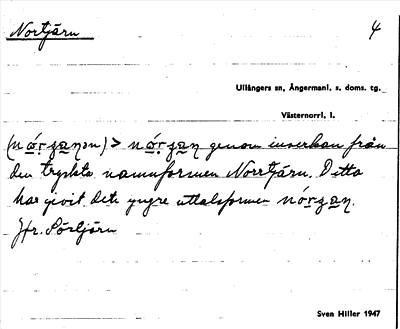 Nortjärn 4
Ullångers sn, Ångermanl. s. doms. tg.
Västernorrl. l.
genom inverkan från
den tryckta namnformen Norrtjärn. Detta
har givit det yngre uttalsformen
Jfr. Sörtjärn
Sven Hiller 1947